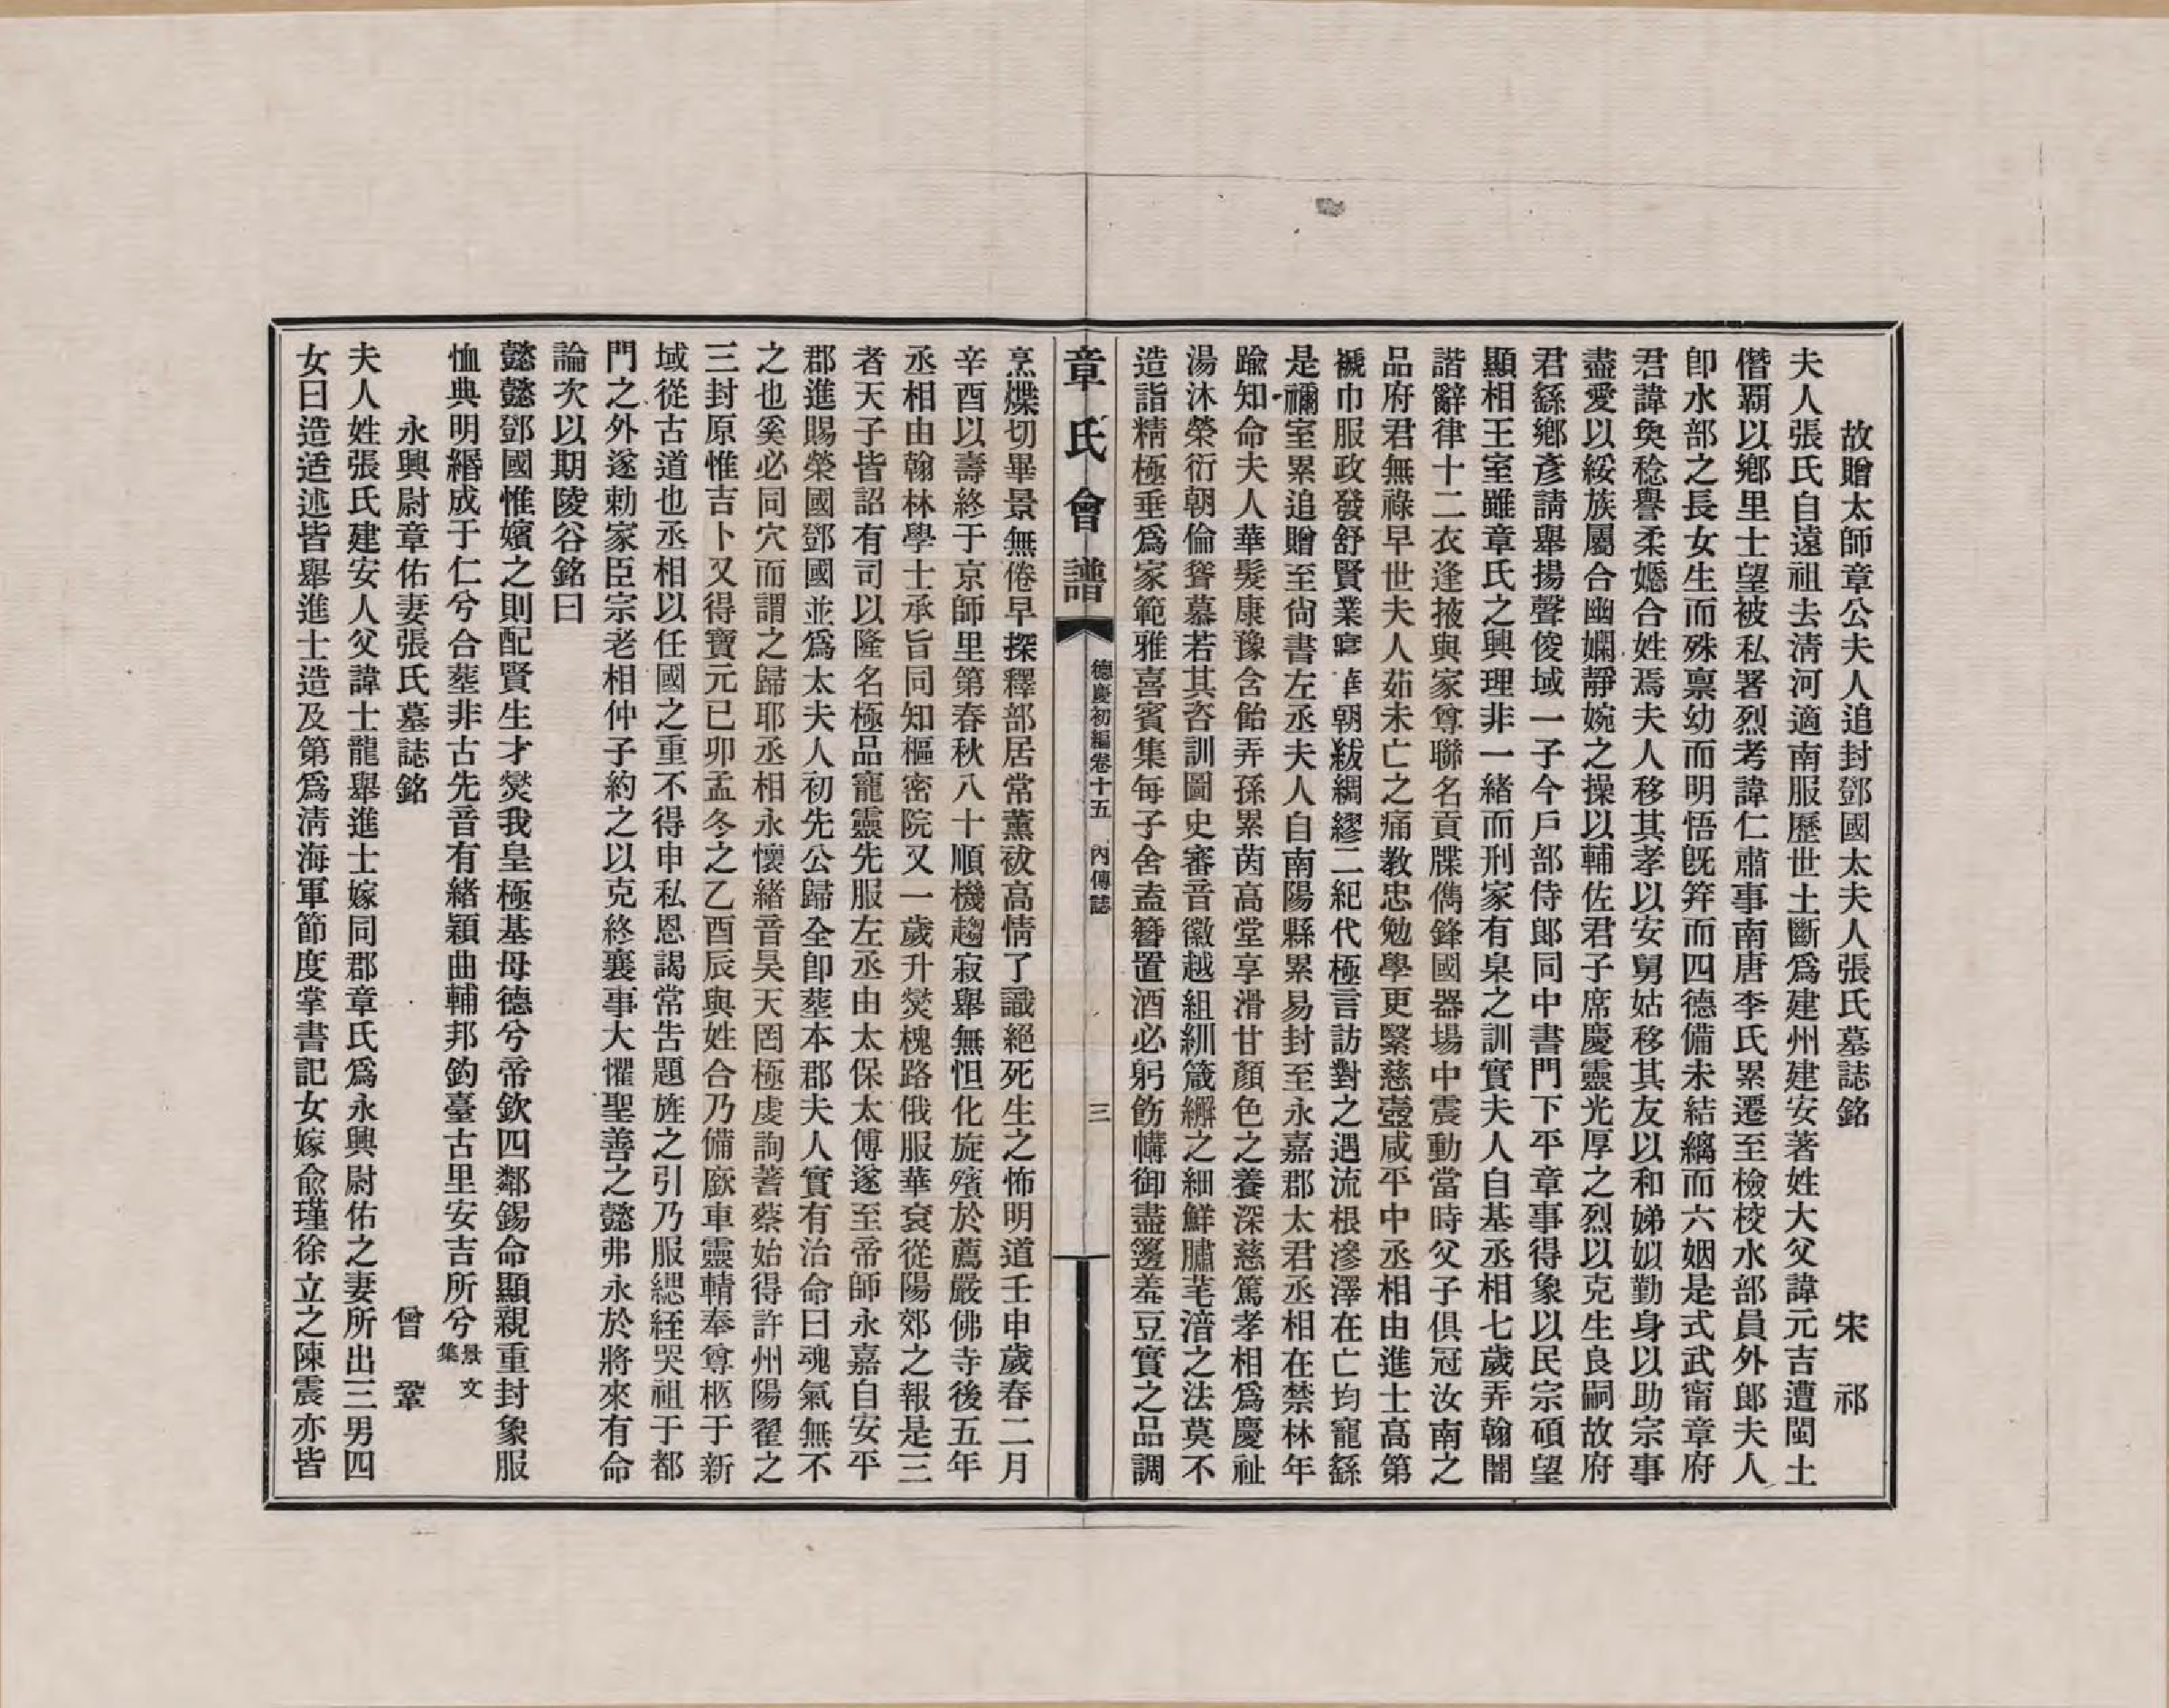 故贈太師章公夫人追封鄧國太夫人張氏墓誌銘　宋　祁
夫人張氏自遠祖去淸河適南服歷世土斷爲建州建安著姓大父諱元吉遭閩土
僭覇以鄕里士望被私署烈考諱仁肅事南唐李氏累遷至檢校水部員外郞夫人
卽水部之長女生而殊禀幼而明悟旣笄而四德備未結縭而六姻是式武甯章府
君諱奐稔譽柔嫕合姓焉夫人移其孝以安舅姑移其友以和娣姒勤身以助宗事
盡愛以綏族屬合幽嫻靜婉之操以輔佐君子席慶靈光厚之烈以克生良嗣故府
君繇鄕彥請舉揚聲俊域一子今戶部侍郞同中書門下平章事得象以民宗碩望
顯相王室雖章氏之興理非一緒而刑家有臬之訓實夫人自基丞相七歲弄翰闇
諧辭律十二衣逢掖與家尊聯名貢牒儁鋒國器場中震動當時父子俱冠汝南之
品府君無祿早世夫人茹未亡之痛敎忠勉學更緊慈壼咸平中丞相由進士高第
褫巾服政發舒賢業朝紱綢繆二紀代極言訪對之遇流根滲澤在亡均寵繇
是禰室累追贈至尙書左丞夫人自南陽縣累易封至永嘉郡太君丞相在禁林年
踰知命夫人華髮康豫含飴弄孫累茵高堂享滑甘顏色之養深慈篤孝相爲慶祉
湯沐榮衍朝倫聳慕若其咨訓圖史審音徽越組紃箴縲之細鮮膴芼湆之法莫不
造詣精極垂爲家範雅喜賓集每子舍盍簪置酒必躬飭幬御盡籩羞豆實之品調
章氏會譜　德慶初編卷十五　內傳誌　三
烹煠切畢景無倦早探釋部居常薰祓高情了識絕死生之怖明道壬申歲春二月
辛酉以壽終于京師里第春秋八十順機趨寂舉無怛化旋殯於薦嚴佛寺後五年
丞相由翰林學士承旨同知樞密院又一歲升爕槐路俄服華袞從陽郊之報是三
者天子皆詔有司以隆名極品寵靈先服左丞由太保太傅遂至帝師永嘉自安平
郡進賜榮國鄧國並爲太夫人初先公歸全卽塟本郡夫人實有治命曰魂氣無不
之也奚必同穴而謂之歸耶丞相永懷緒音昊天罔極虔詢蓍蔡始得許州陽翟之
三封原惟吉卜又得寶元已卯孟冬之乙酉辰與姓合乃備廞車靈輤奉尊柩于新
域從古道也丞相以任國之重不得申私恩謁常告題旌之引乃服緦絰哭祖于都
門之外遂勅家臣宗老相仲子約之以克終襄事大懼聖善之懿弗永於將來有命
論次以期陵谷銘曰
懿懿鄧國惟嬪之則配賢生才爕我皇極基母德兮帝欽四鄰錫命顯親重封象服
恤典明緡成于仁兮合塟非古先音有緒穎曲輔邦釣臺古里安吉所兮景文集
永興尉章佑妻張氏墓誌銘　曾　鞏
夫人姓張氏建安人父諱士龍舉進士嫁同郡章氏爲永興尉佑之妻所出三男四
女曰造适述皆舉進士造及第爲淸海軍節度掌書記女嫁兪瑾徐立之陳震亦皆